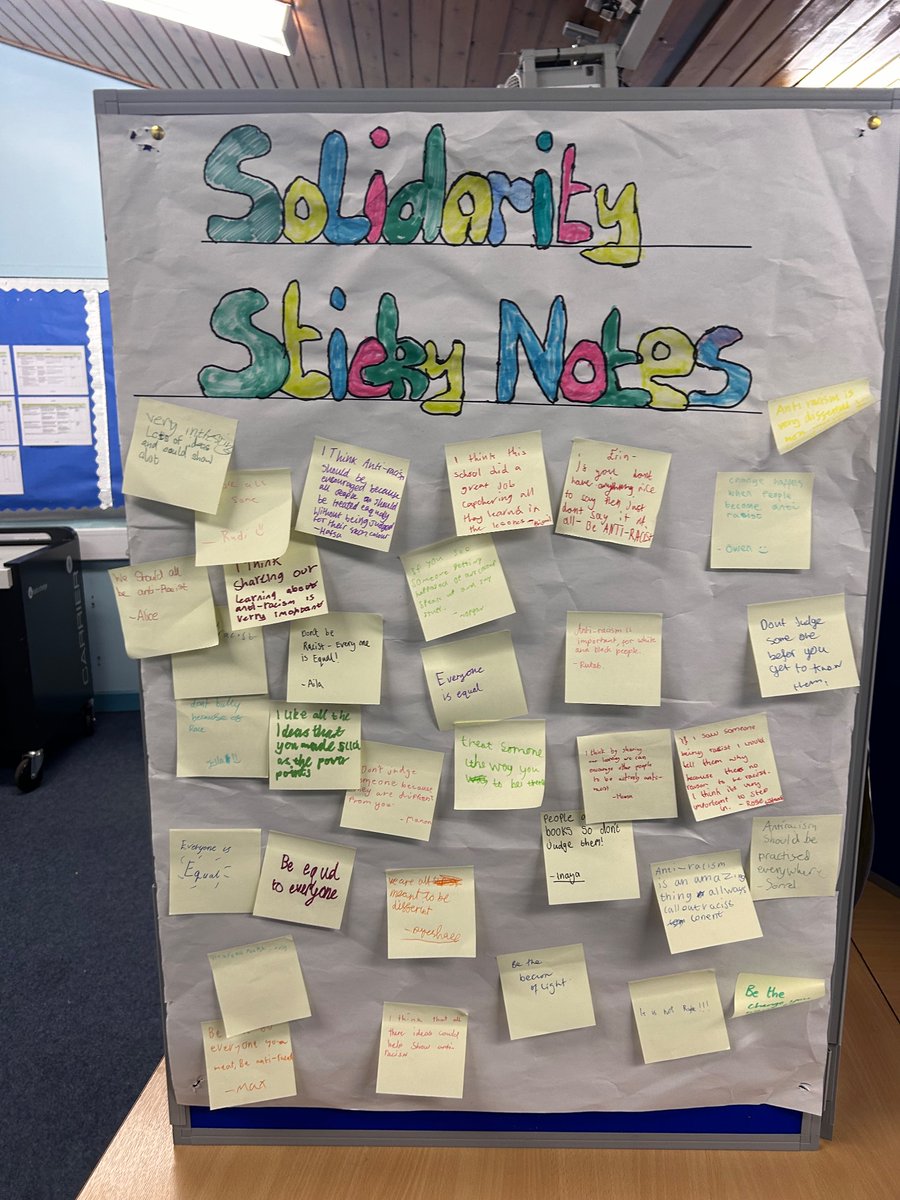 Solidarity
Sticky Notes
very
Lots of ideas
and could show
alot
all
same
- Rudi
I Think Anti-racism
should be
encouraged because
all people should
be treated equally
without being judged
for their skin colour
- Hafsa
I think this
school did a
great job
all
they learnts in
the
- Erin -
Is you dont
have anything nice
to say then just
dont say it at
all - Be ANTI-RACIST
Anti racism is
very
change happens
when people
become anti
racist
- Owen
We Should all
be anti-Racist
- Alice
I Think
Sharing our
learning about
anti-racism is
very imortant
If you see
someone getting
speak up and say
stuff.
racist
Dont be
Racist - Every one
is Equal!
- Aila
Everyone
is equal
Anti-racism is
important, for white
and black people.
Dont Judge
some one
befor you
get to know
them,
dont bully
because of
Race
I like all the
Ideas that
you made such
as the power
points
Don't judge
someone because
they are different
from you
- Manon
treat somone
the way you
to be
I think by sharing
our learning we can
encourage other people
to be actively anti-
racist
If I saw someone
being racist I would
tell them why
because theres no
reason to be racist.
I think its very
important to step
in. - Rose
Everyone is
Equal
Be equd
to everyone
we are all
meant to be
People
books so dont
Judge them!
- Inaya
Anti-racism
is an amazing
thing allways
call out racist
Antiracism
should be
practised
everywhere
- Sorrel
Be the
of light
It is not Ride!!!
Be the
change
Be
everyone you
meat, Be anti-
- Max
I think that all
there ideas could
help show anti-
racism